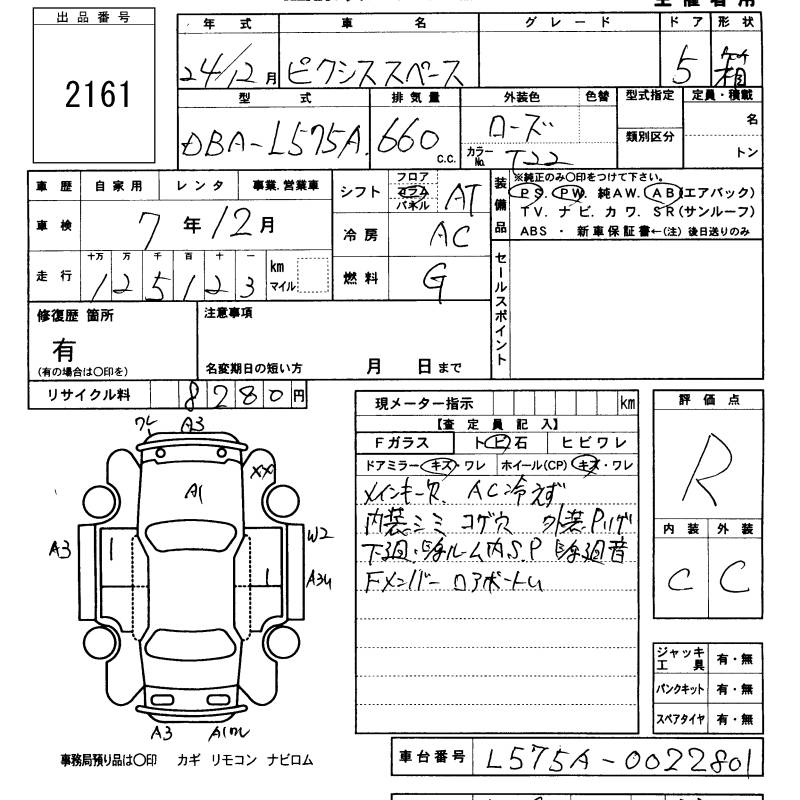 出品番号
2161
年式 車名 グレード ドア 形状
24/12月 ピクシススペース 5 箱
型式 排気量 外装色 色替 型式指定 定員・積載
DBA-L575A 660 c.c. ローズ 名
カラーNo. T22 類別区分 トン
車歴 自家用 レンタ 事業.営業車
車検 7年12月
走行 十万 万 千 百 十 一 km マイル
125123
シフト フロア コラム パネル AT
冷房 AC
燃料 G
装備品 ※純正のみ〇印をつけて下さい。
PS. PW. 純AW. AB(エアバック)
TV. ナビ. カワ. SR(サンルーフ)
ABS ・ 新車保証書←(注) 後日送りのみ
セールスポイント
修復歴 箇所 注意事項
有
(有の場合は〇印を) 名変期日の短い方 月 日まで
リサイクル料 8280円
現メーター指示 km
【査定員記入】
Fガラス トビ石 ヒビワレ
ドアミラー キズ・ワレ ホイール(CP) キズ・ワレ
メインキー欠 AC冷えず
内装シミ コゲ穴 外装Pハゲ
下廻.ルーム内S.P
Fメンバー ロアボートム
評価点
R
内装 外装
C C
ジャッキ工具 有・無
パンクキット 有・無
スペアタイヤ 有・無
ワレ A3
A1 XX
A3 W2
A3
A3 A1ワレ
事務局預り品は〇印 カギ リモコン ナビロム
車台番号 L575A-0022801